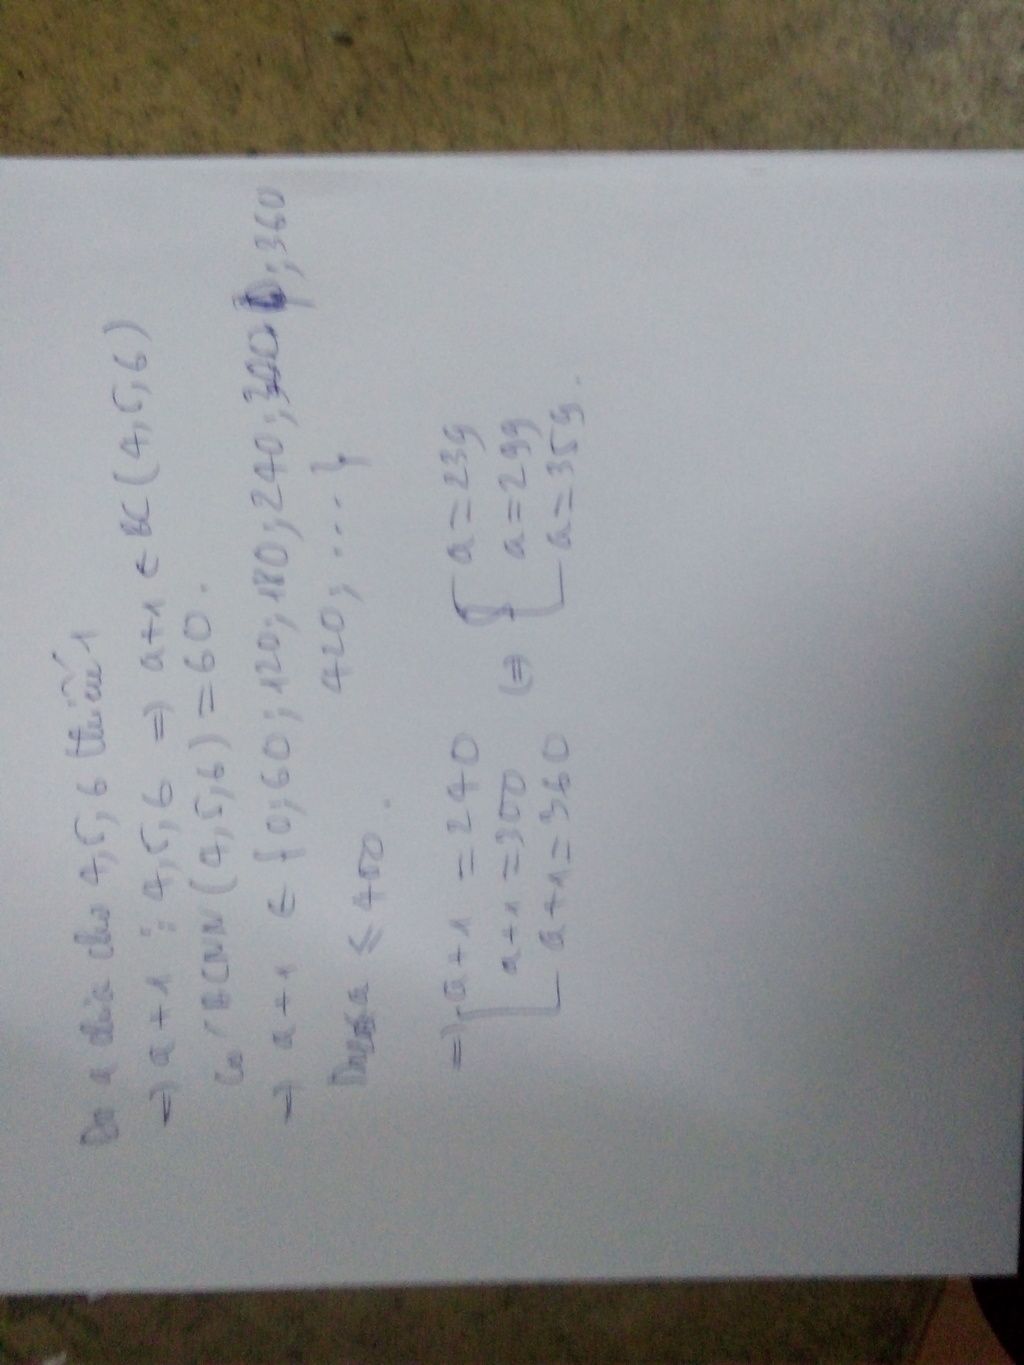 Do a chia cho 4, 5, 6 thiếu 1
=> a+1 ⋮ 4, 5, 6 => a+1 ∈ BC (4, 5, 6)
Có BCNN (4, 5, 6) = 60.
=> a+1 ∈ {0; 60; 120; 180; 240; 300; 360
420; ....}
a ≤ 400.
=> [ a+1 = 240 (=) [ a = 239
a+1 = 300 a = 299
a+1 = 360 a = 359.